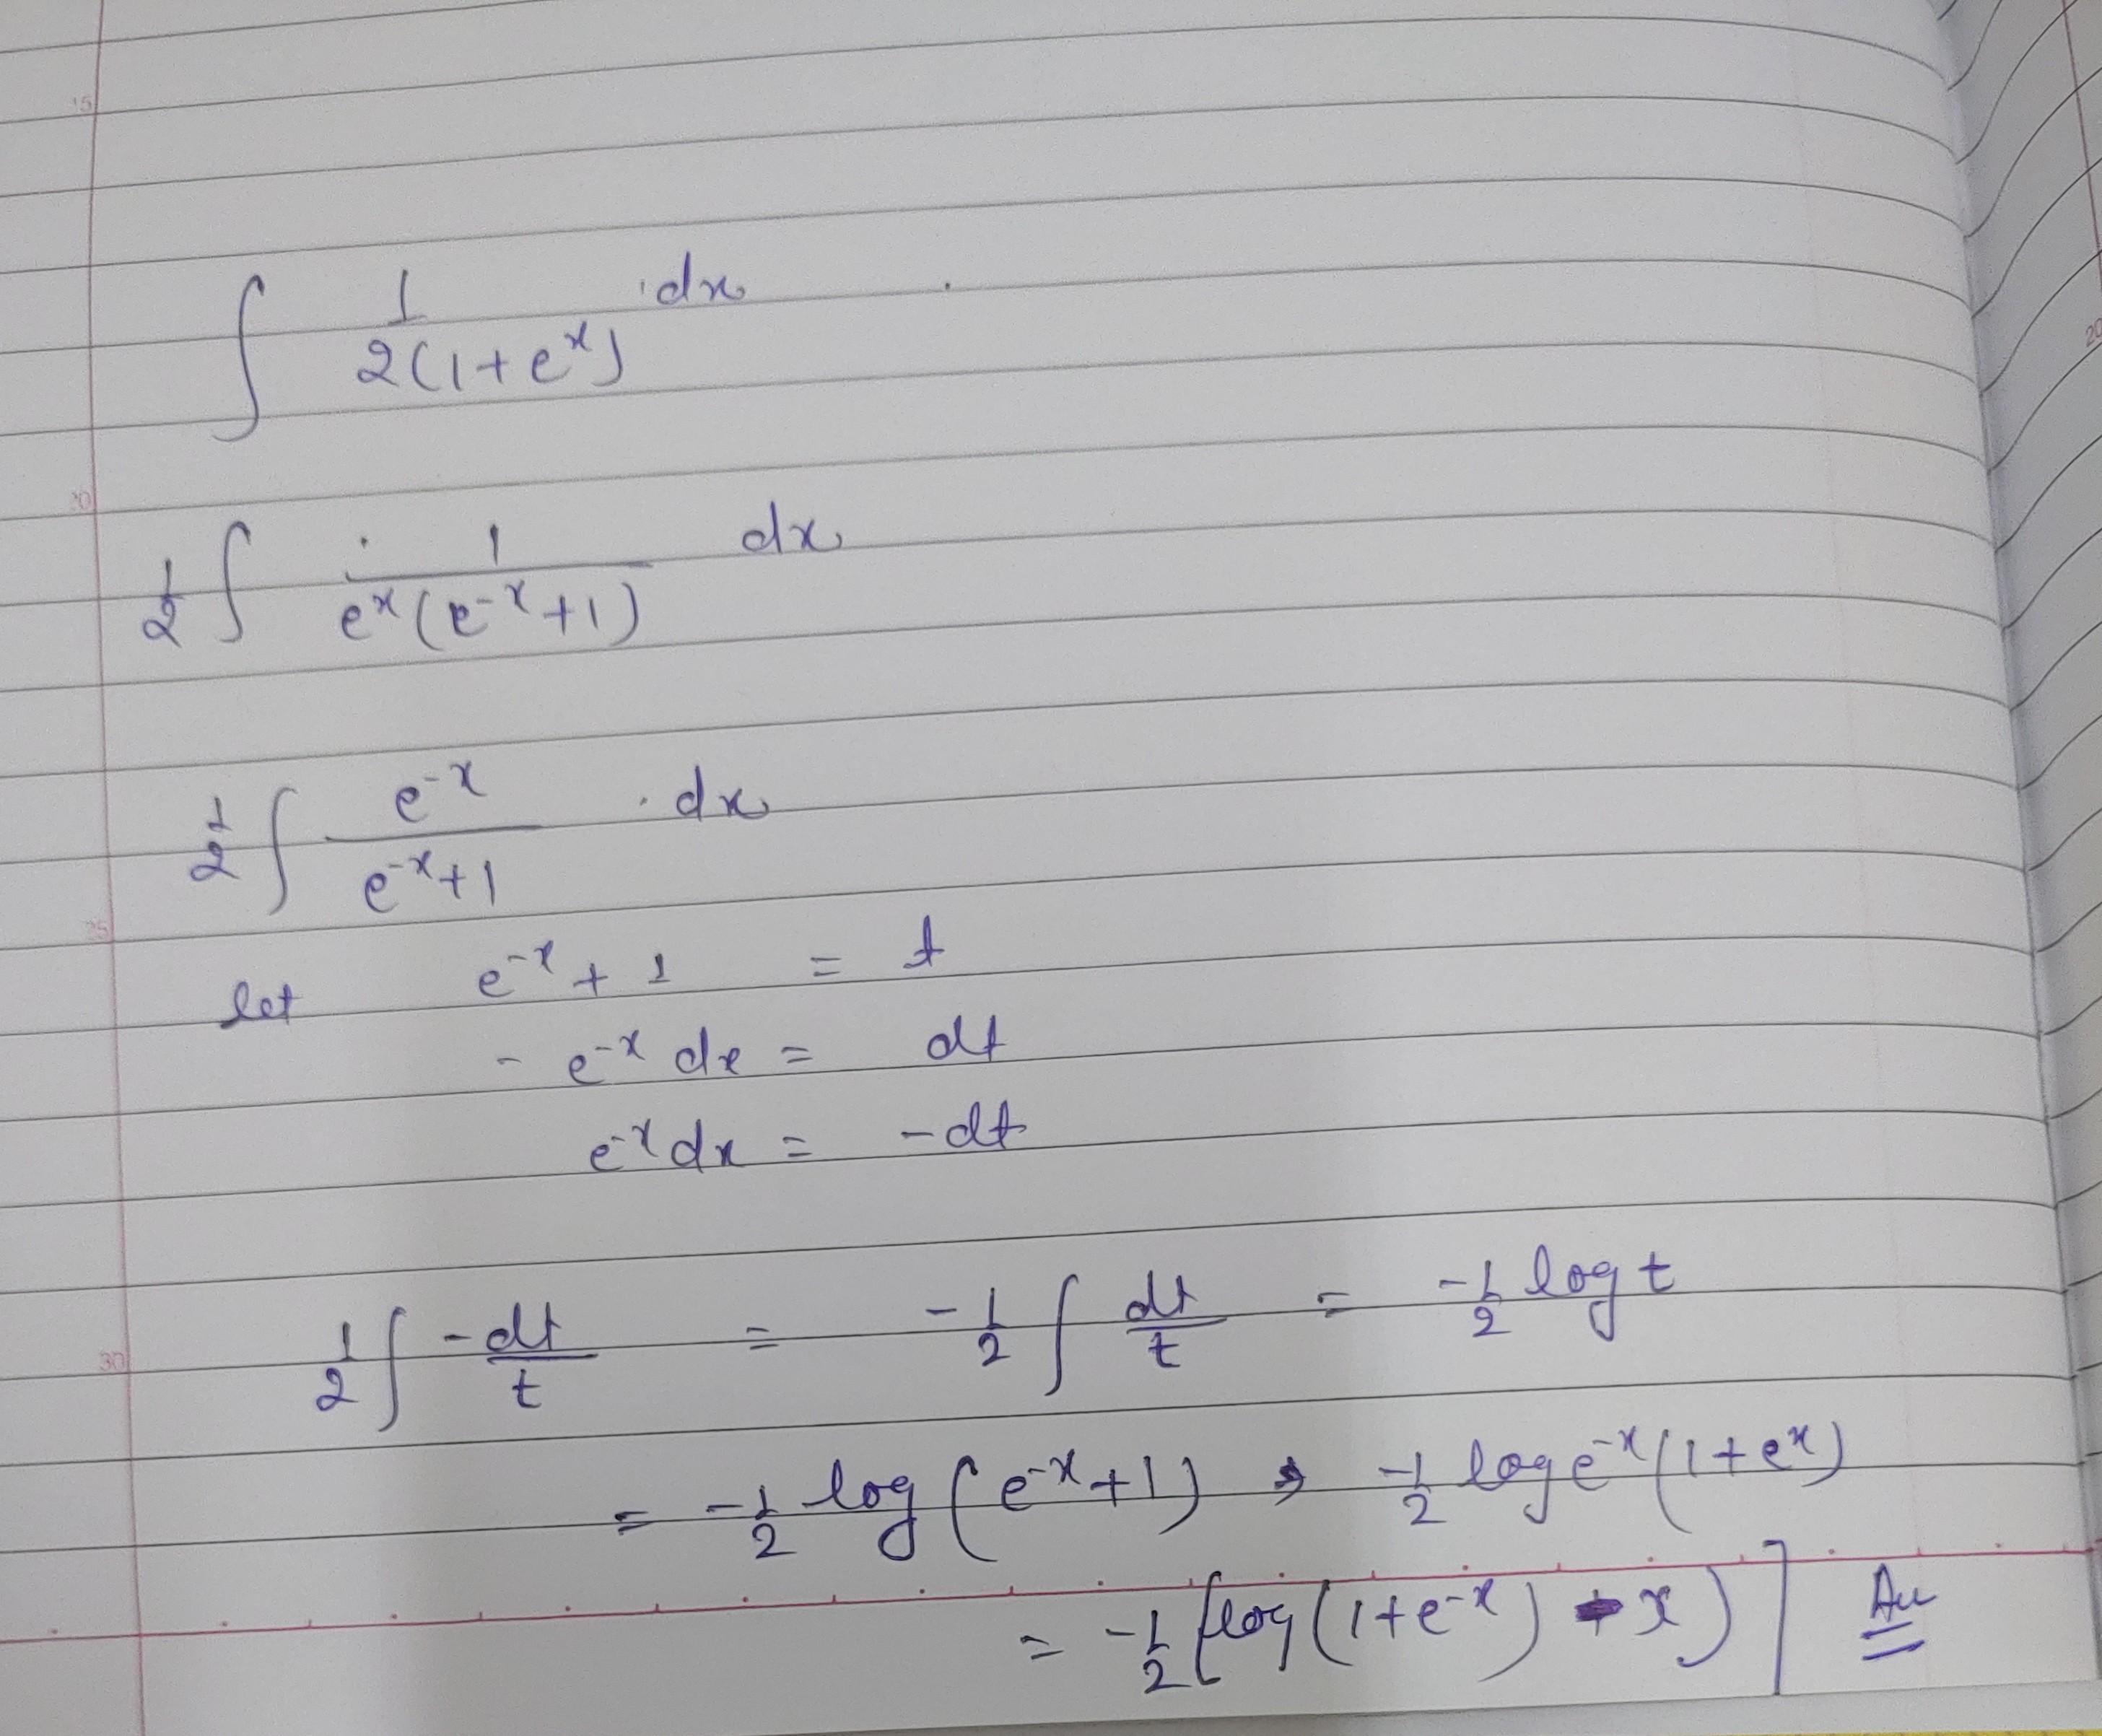 15
∫ 1/2(1+e^x) .dx
20
20
1/2 ∫ 1/e^x(e^-x+1) dx
1/2 ∫ e^-x/e^-x+1 .dx
25
let e^-x + 1 = t
- e^-x dx = dt
e^-x dx = -dt
30
1/2 ∫ -dt/t = -1/2 ∫ dt/t = -1/2 log t
= -1/2 log (e^-x+1) ⇒ -1/2 log e^-x (1+e^x)
= -1/2 [log (1+e^-x) - x)] Au